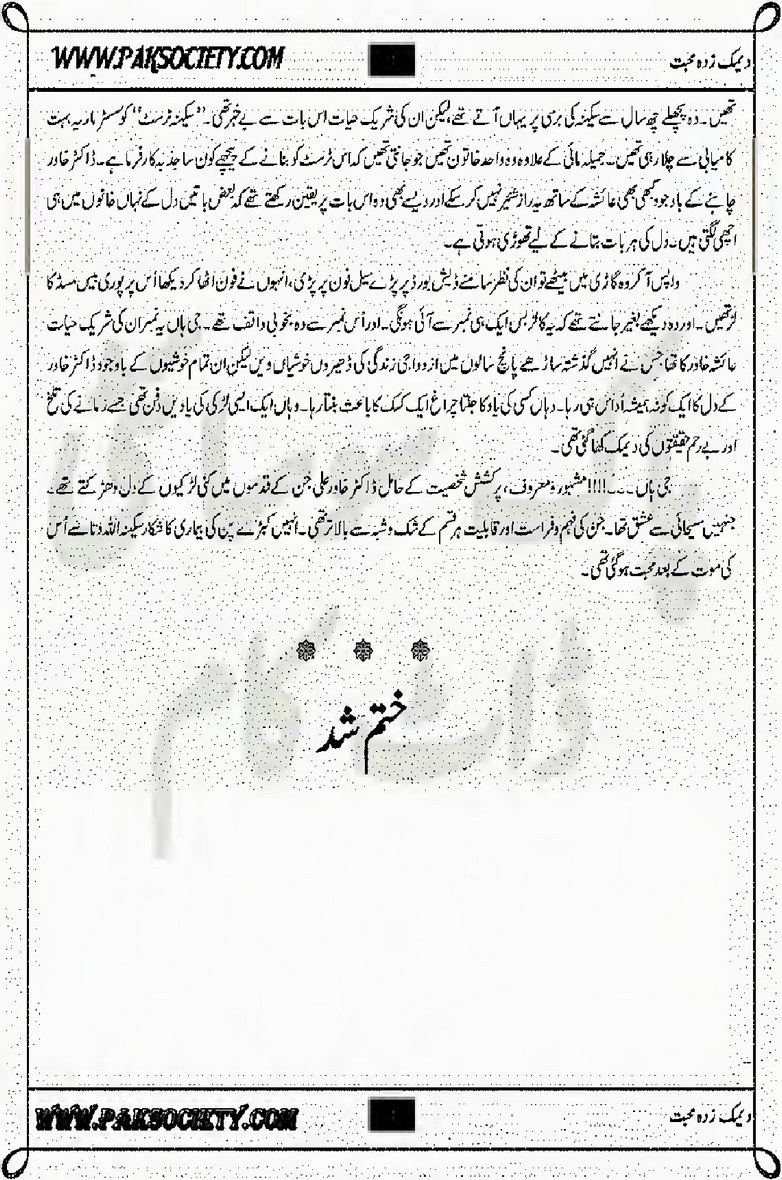 WWW.PAKSOCIETY.COM
دیمک زدہ محبت
تھیں۔ وہ پچھلے چھ سال سے سکینہ کی برسی پر یہاں آتے تھے لیکن ان کی شریک حیات اس بات سے بے خبر تھی۔ ”سکینہ ٹرسٹ“ کو سسٹر ماریہ بہت
کامیابی سے چلا رہی تھیں۔ جمیلہ مائی کے علاوہ وہ واحد خاتون تھیں جو جانتی تھیں کہ اس ٹرسٹ کو بنانے کے پیچھے کون سا جذبہ کارفرما ہے۔ ڈاکٹر خاور
چاہنے کے باوجود کبھی بھی عائشہ کے ساتھ یہ راز شئیر نہیں کر سکے اور ویسے بھی وہ اس بات پر یقین رکھتے تھے کہ بعض باتیں دل کے نہاں خانوں میں ہی
اچھی لگتی ہیں۔ دل کی ہر بات بتانے کے لیے تھوڑی ہوتی ہے۔
واپس آکر وہ گاڑی میں بیٹھے تو ان کی نظر سامنے ڈیش بورڈ پر پڑے سیل فون پر پڑی، انہوں نے فون اٹھا کر دیکھا اُس پر پوری بیس مسڈ کا
لز تھیں۔ اور وہ دیکھے بغیر جانتے تھے کہ یہ کالز بس ایک ہی نمبر سے آئی ہونگی۔ اور اُس نمبر سے وہ بخوبی واقف تھے۔ جی ہاں یہ نمبر ان کی شریک حیات
عائشہ خاور کا تھا جس نے انہیں گذشتہ ساڑھے پانچ سالوں میں ازدواجی زندگی کی ڈھیروں خوشیاں دیں لیکن ان تمام خوشیوں کے باوجود ڈاکٹر خاور
کے دل کا ایک کونہ ہمیشہ اُداس ہی رہا۔ وہاں کسی کی یاد کا جلتا چراغ ایک کسک کا باعث بنتا رہا۔ وہاں ایک ایسی لڑکی کی یادیں دفن تھی جسے زمانے کی تلخ
اور بے رحم حقیقتوں کی دیمک کھا گئی تھی۔
جی ہاں۔۔۔!!!! مشہور و معروف، پر کشش شخصیت کے حامل ڈاکٹر خاور علی جن کے قدموں میں کئی لڑکیوں کے دل دھڑکتے تھے۔
جنہیں مسیحائی سے عشق تھا۔ جن کی فہم و فراست اور قابلیت ہر قسم کے شک و شبہ سے بالاتر تھی۔ اُنہیں کبڑے پن کی بیماری کا شکار سکینہ اللہ دتا سے اُس
کی موت کے بعد محبت ہو گئی تھی۔
ختم شد
پاک سوسائٹی
ڈاٹ کام
WWW.PAKSOCIETY.COM
دیمک زدہ محبت